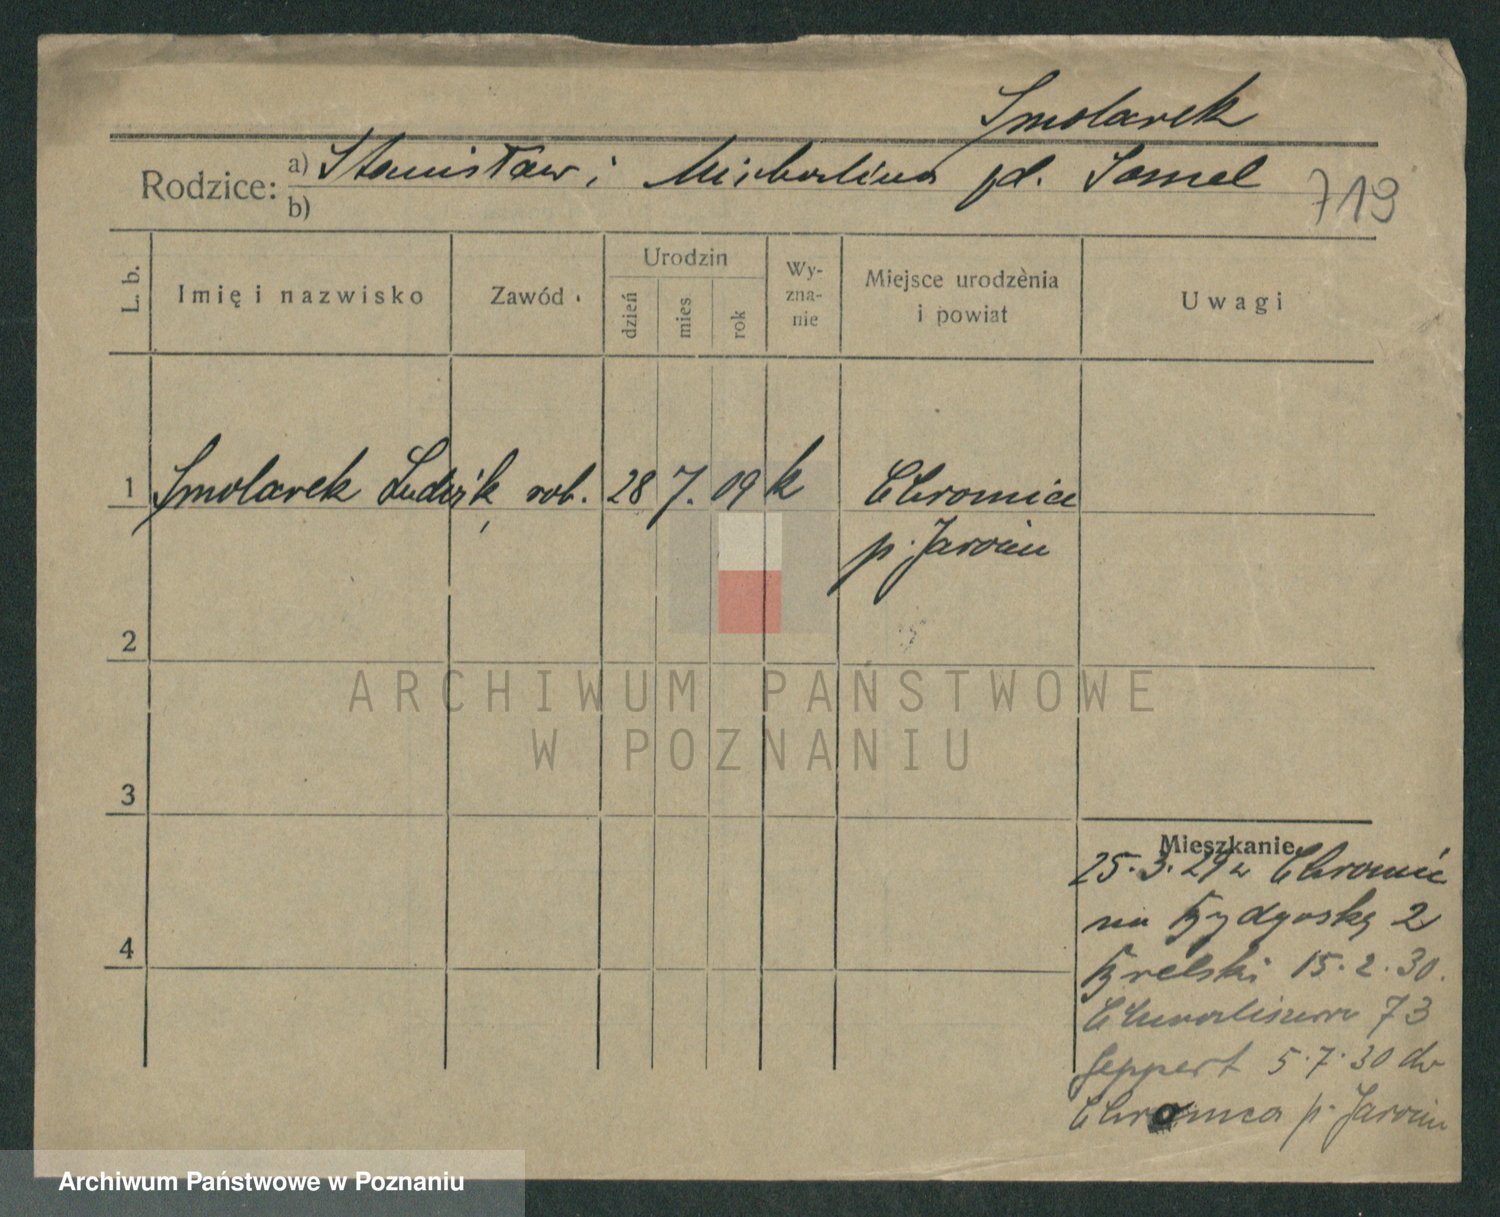 Smolarek
Rodzice: a) Stanisław i Michalina zd. Samel
b)
719
L. b.
Imię i nazwisko
Zawód
Urodzin
dzień
mies
rok
Wy-
zna-
nie
Miejsce urodzènia
i powiat
Uwagi
1 Smolarek Ludwik rob. 28 7. 09 k Chromice
p. Jarocin
2
3
4
Mieszkanie
25.3.29 z Chromic
na Bydgoską 2
15.2.30.
Chwaliszewo 73
Geppert 5.7.30 do
Chromca p. Jarocin
ARCHIWUM PAŃSTWOWE
W POZNANIU
Archiwum Państwowe w Poznaniu